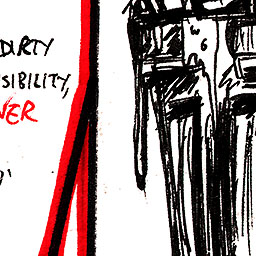 DIRTY
SIBILITY,
VER